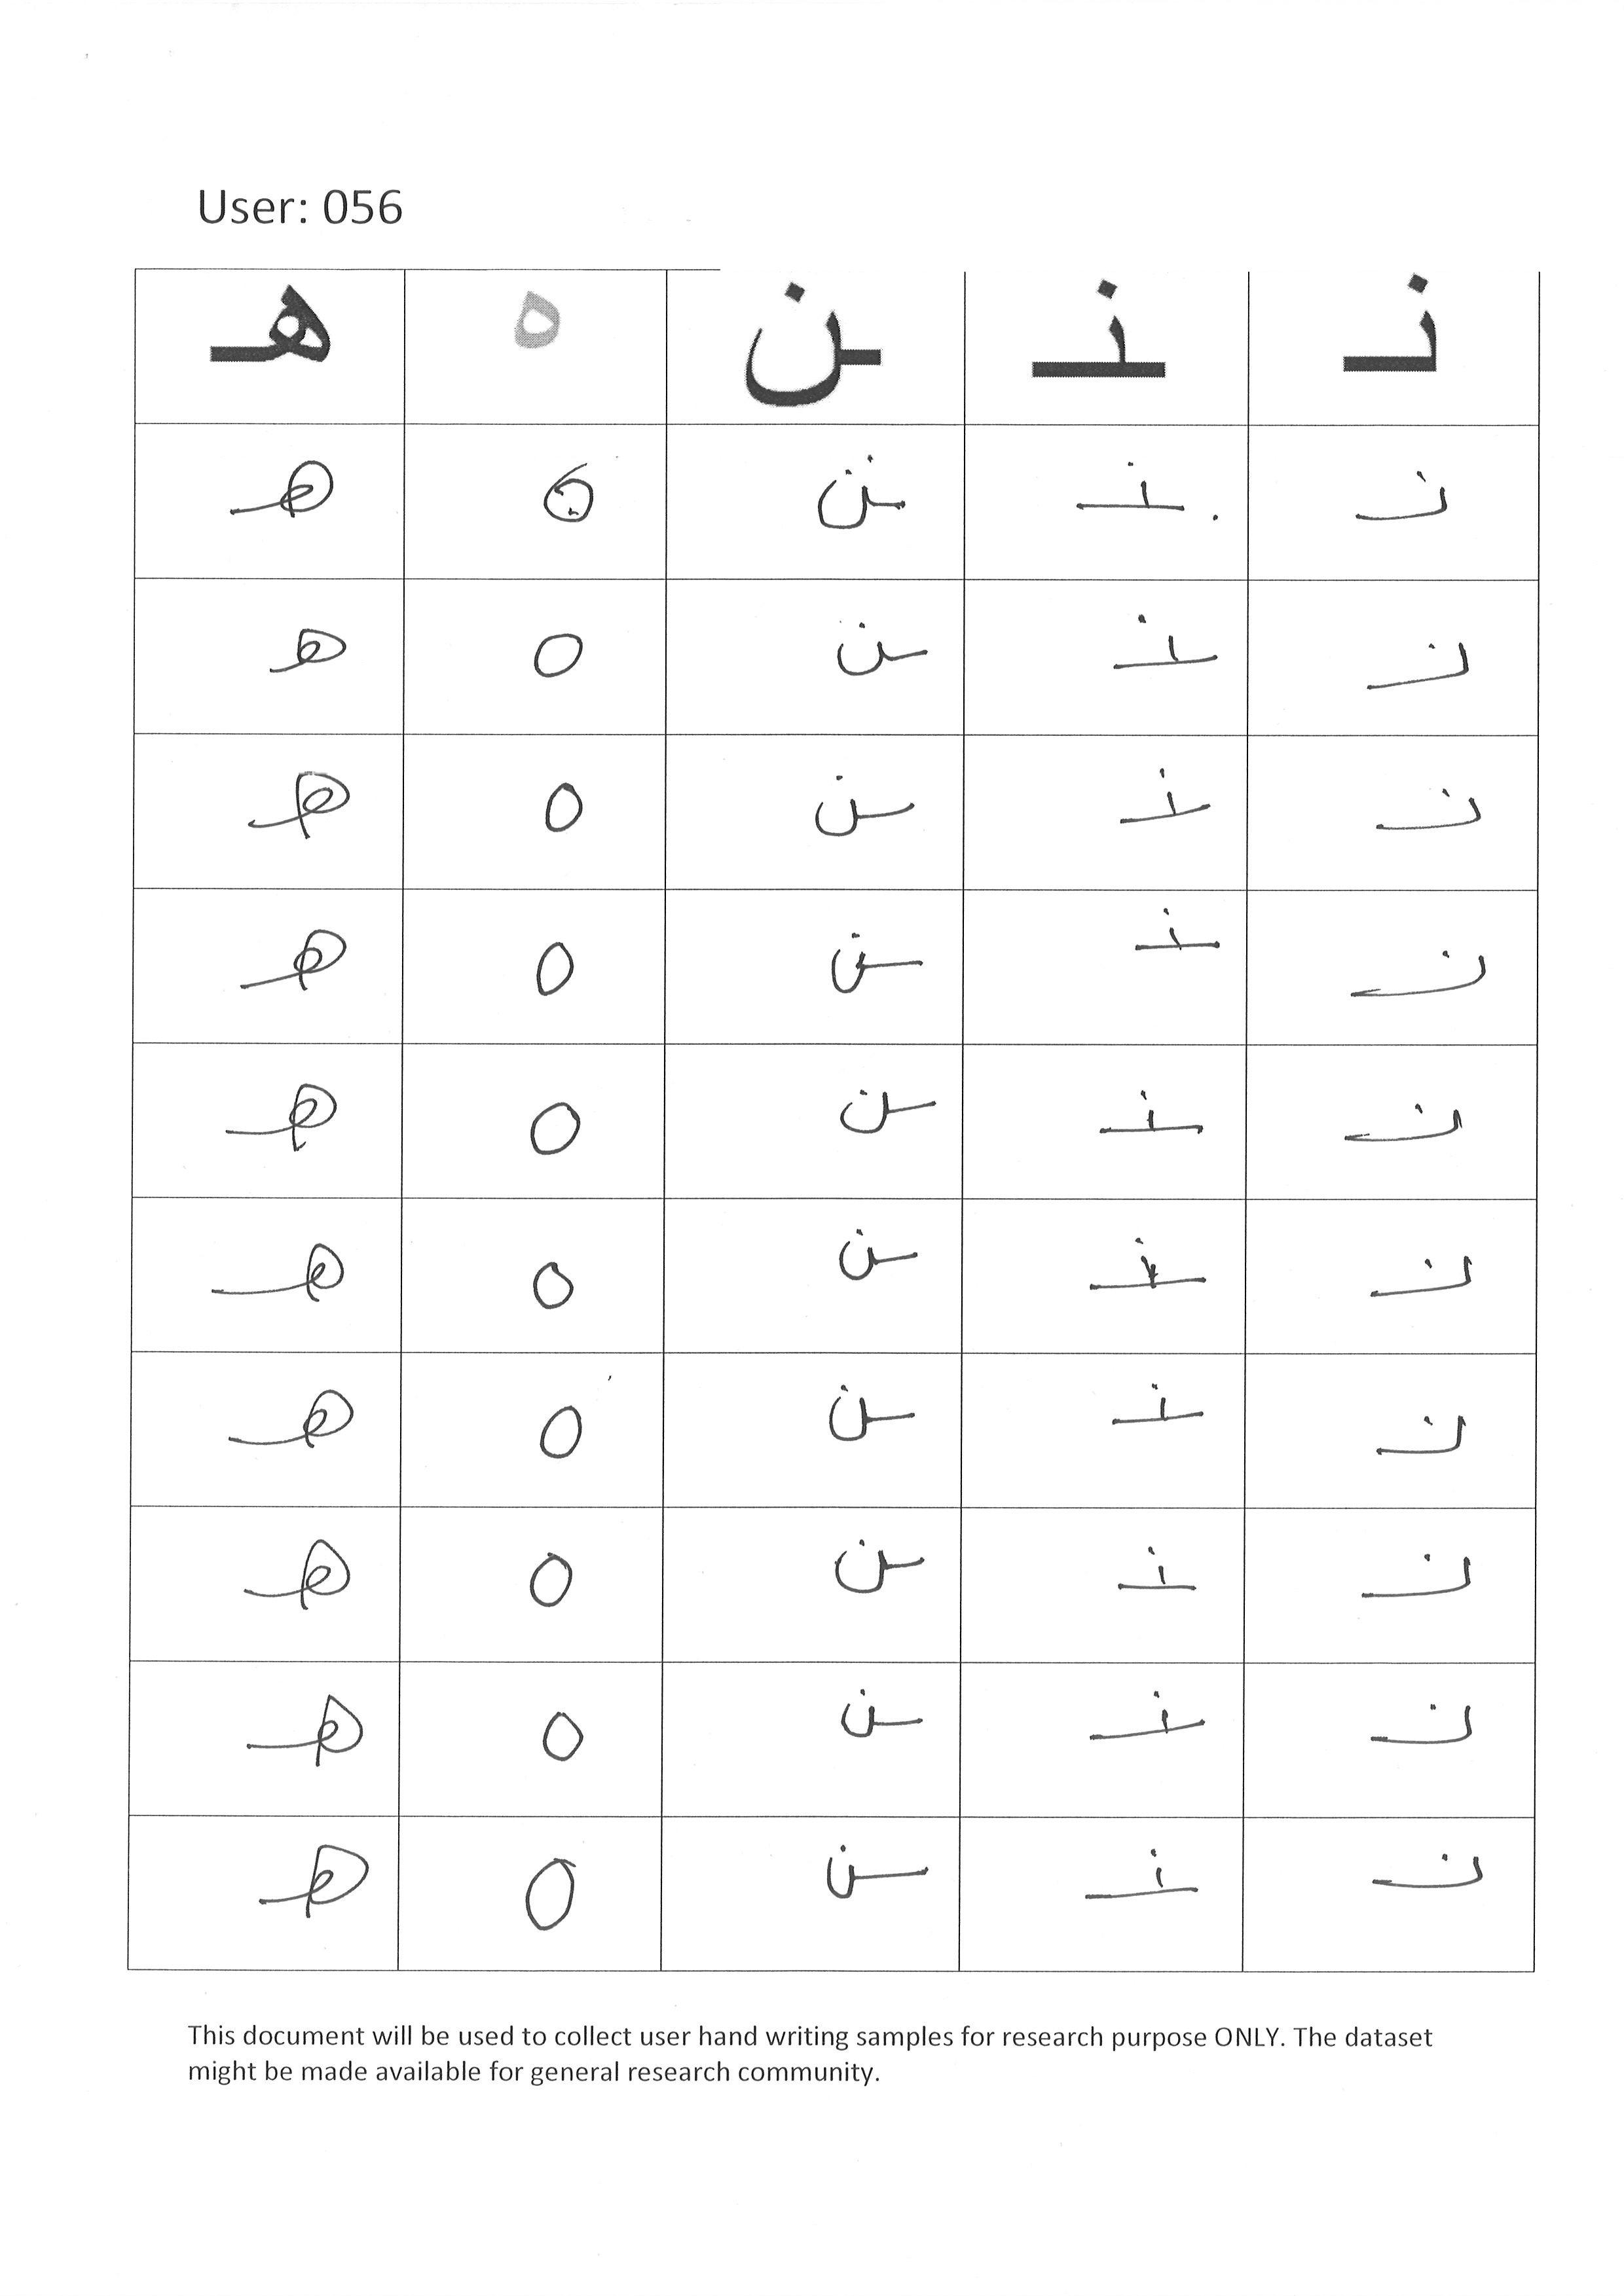 User: 056
نـ ـنـ ـن ه هـ
نـ ـنـ ـن ه هـ
نـ ـنـ ـن ه هـ
نـ ـنـ ـن ه هـ
نـ ـنـ ـن ه هـ
نـ ـنـ ـن ه هـ
نـ ـنـ ـن ه هـ
نـ ـنـ ـن ه هـ
نـ ـنـ ـن ه هـ
نـ ـنـ ـن ه هـ
نـ ـنـ ـن ه هـ
This document will be used to collect user hand writing samples for research purpose ONLY. The dataset
might be made available for general research community.